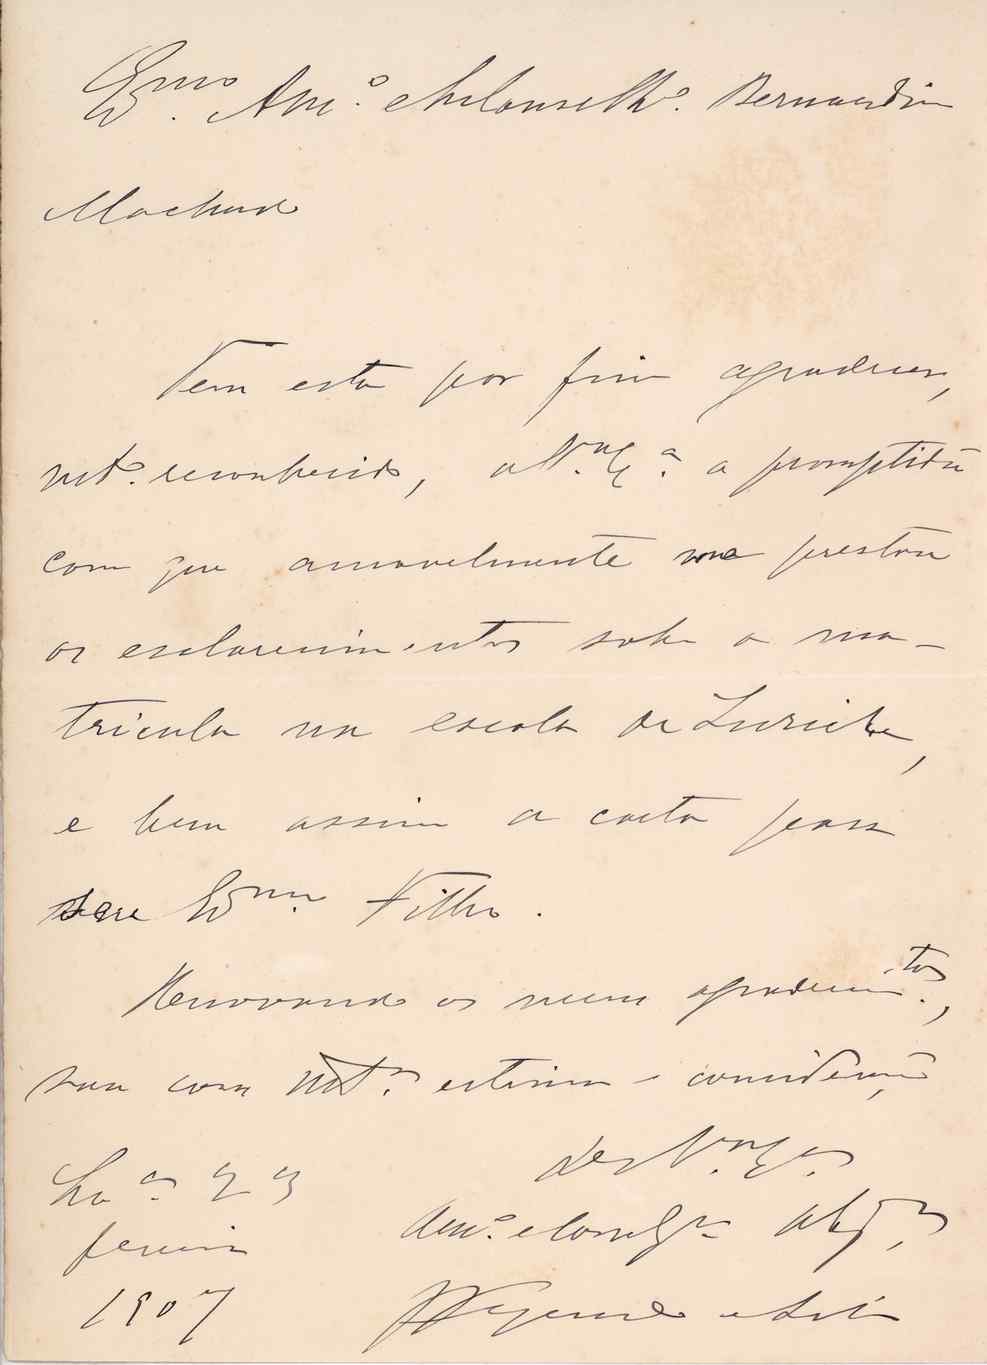 Exmo. Amo. e Conselho. Bernardino
Machado
Vem esta por fim agradecer,
mto. reconhecido, a V. Exa. a promptidão
com que amavelmente me prestou
os esclarecimentos sobre a ma-
tricula na escola de Zurich,
e bem assim a carta para
seu Exmo. Filho.
Renovando os meus agradecimtos.,
sou com mta. estima e consideração,
de V. Exa.
Lxa. 23
Amo. e
fevereiro
1907